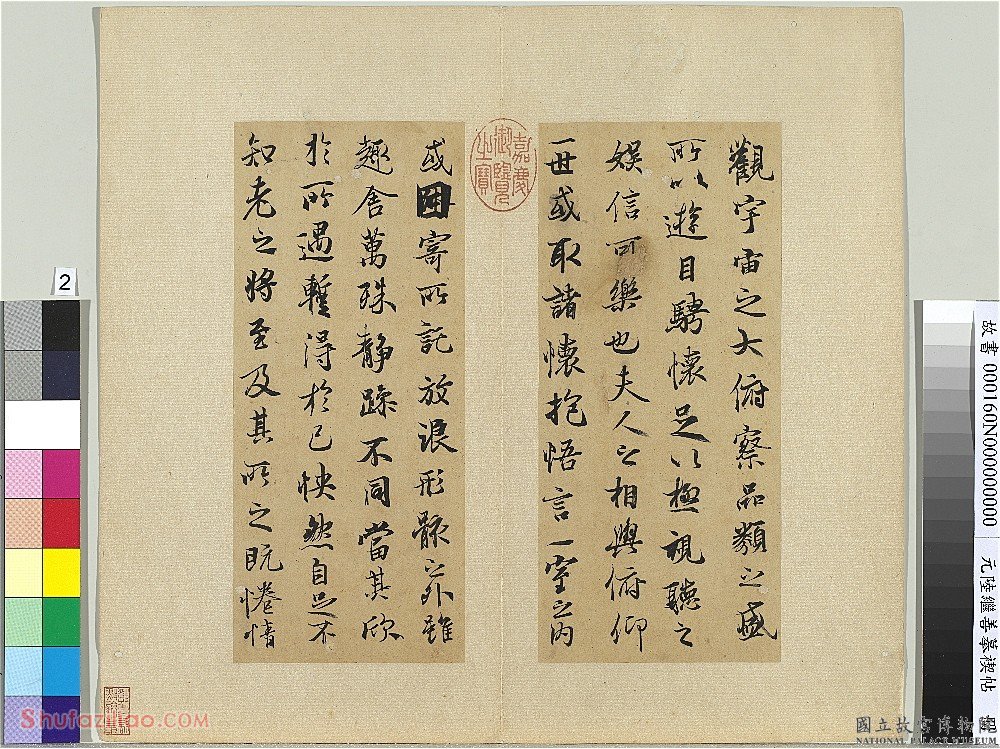 觀宇宙之大俯察品類之盛
所以遊目騁懷足以極視聽之
娛信可樂也夫人之相與俯仰
一世或取諸懷抱悟言一室之內
或因寄所託放浪形骸之外雖
趣舍萬殊靜躁不同當其欣
於所遇暫得於己怏然自足不
知老之將至及其所之既惓情
嘉慶御覽之寶
2
故書 000160N000000000 元陸繼善摹禊帖
Shufazihao.COM
國立故宮博物院
NATIONAL PALACE MUSEUM